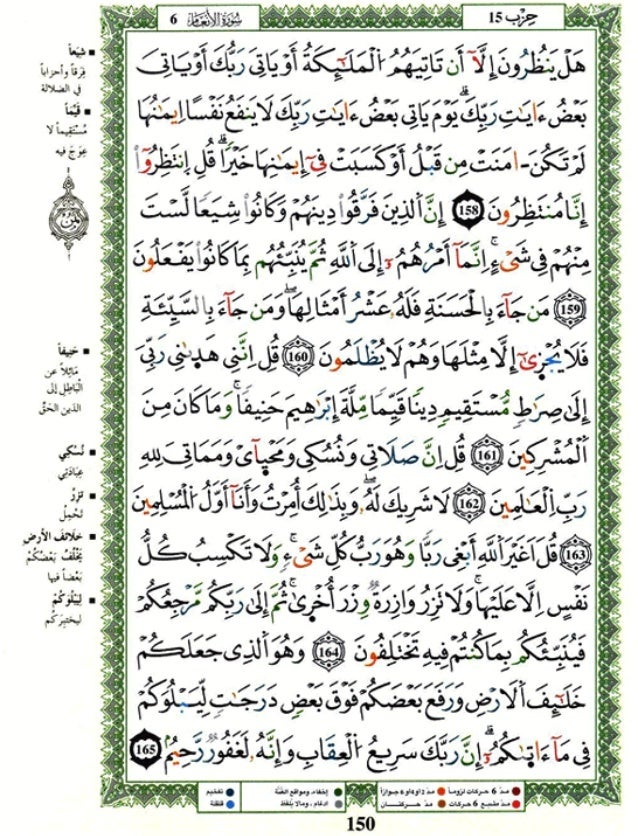 سُورَةُ الأنعَام 6
حِزب 15
هَلْ يَنظُرُونَ إِلَّآ أَن تَاتِيَهُمُ اُلْمَلَٰٓئِكَةُ أَوْ يَاتِىَ رَبُّكَ أَوْ يَاتِىَ
بَعْضُ ءَايَٰتِ رَبِّكَۗ يَوْمَ يَاتِى بَعْضُ ءَايَٰتِ رَبِّكَ لَا يَنفَعُ نَفْسًا اِيمَٰنُهَا
لَمْ تَكُنَ اٰمَنَتْ مِن قَبْلُ أَوْ كَسَبَتْ فِىٓ إِيمَٰنِهَا خَيْرًاۗ قُلِ اِنتَظِرُوٓاْ
إِنَّا مُنتَظِرُونَ 158 إِنَّ اَلذِينَ فَرَّقُواْ دِينَهُمْ وَكَانُواْ شِيَعًا لَّسْتَ
مِنْهُمْ فِى شَىْءٍۚ اِنَّمَآ أَمْرُهُمُۥٓ إِلَى اَللَّهِ ثُمَّ يُنَبِّئُهُم بِمَا كَانُواْ يَفْعَلُونَ
159 مَن جَآءَ بِالْحَسَنَةِ فَلَهُۥ عَشْرُ أَمْثَالِهَاۖ وَمَن جَآءَ بِالسَّيِّئَةِ
فَلَا يُجْزَىٰٓ إِلَّا مِثْلَهَا وَهُمْ لَا يُظْلَمُونَ 160 قُلِ اِنَّنِى هَدَىٰنِى رَبِّىَ
إِلَىٰ صِرَٰطٍ مُّسْتَقِيمٍ دِينًا قَيِّمًا مِّلَّةَ إِبْرَٰهِيمَ حَنِيفًاۚ وَمَا كَانَ مِنَ
اَلْمُشْرِكِينَ 161 قُلِ اِنَّ صَلَاتِى وَنُسُكِى وَمَحْيَآىْ وَمَمَاتِىَ لِلهِ
رَبِّ اِلْعَٰلَمِينَ 162 لَا شَرِيكَ لَهُۥۖ وَبِذَٰلِكَ أُمِرْتُ وَأَنَآ أَوَّلُ اُلْمُسْلِمِينَ
163 قُلَ اَغَيْرَ اَللَّهِ أَبْغِى رَبًّا وَهُوَ رَبُّ كُلِّ شَىْءٍۚ وَلَا تَكْسِبُ كُلُّ
نَفْسٍ اِلَّا عَلَيْهَاۚ وَلَا تَزِرُ وَازِرَةٌ وِزْرَ أُخْرَىٰۚ ثُمَّ إِلَىٰ رَبِّكُم مَّرْجِعُكُمْ
فَيُنَبِّئُكُم بِمَا كُنتُمْ فِيهِ تَخْتَلِفُونَ 164 وَهُوَ اَلذِى جَعَلَكُمْ
خَلَٰٓئِفَ اَلَارْضِ وَرَفَعَ بَعْضَكُمْ فَوْقَ بَعْضٍ دَرَجَٰتٍ لِّيَبْلُوَكُمْ
فِى مَآ ءَاتَىٰكُمُۥٓۗ إِنَّ رَبَّكَ سَرِيعُ اُلْعِقَابِ وَإِنَّهُۥ لَغَفُورٌ رَّحِيمٌ 165
■ شِيَعاً
فِرَقاً وأحزاباً
في الضلالة
■ قَيِّماً
مُسْتَقِيماً لا
عِوَجَ فيه
■ حَنِيفاً
مَائِلاً عن
الباطِلِ إلى
الدين الحَقّ
■ نُسُكِي
عِبَادَتِي
■ تَزِرُ
تَحْمِلُ
■ خَلَائفَ الأَرْضِ
يَخْلُفُ بَعْضُكُمْ
بَعْضاً فيها
■ لِيَبْلُوَكُمْ
لِيختبِرَكم
مدّ 6 حركات لزوماً
مدّ 2 أو 4 أو 6 جوازاً
إخفاء، ومواقع الغُنَّة
تفخيم
مدّ مشبع 6 حركات
مدّ حركتان
إدغام، وما لا يُلفَظ
قلقلة
150